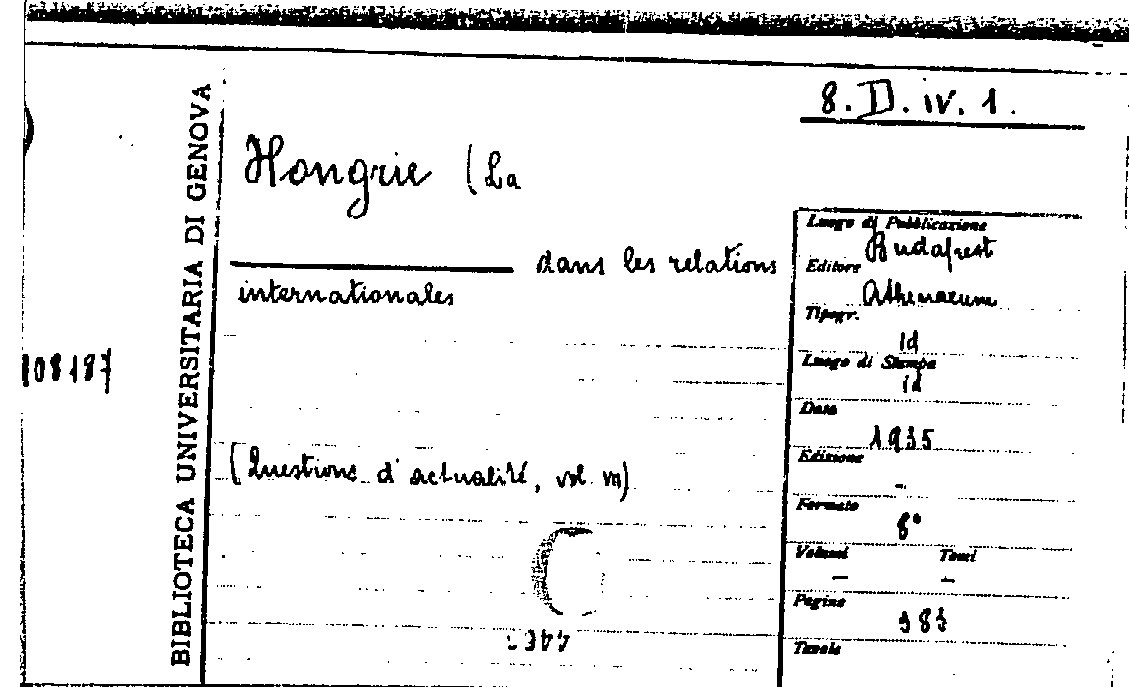 8. D. iv. 1.
BIBLIOTECA UNIVERSITARIA DI GENOVA
Hongrie (La
dans les relations
internationales
108187
(Questions d'actualité, vol.
Luogo di Pubblicazione
Budapest
Editore
Athenaeum
Tipogr.
id
Luogo di Stampa
id
Data
1935
Edizione
-
Formato
8°
Volumi Tomi
- -
Pagine
Tavole